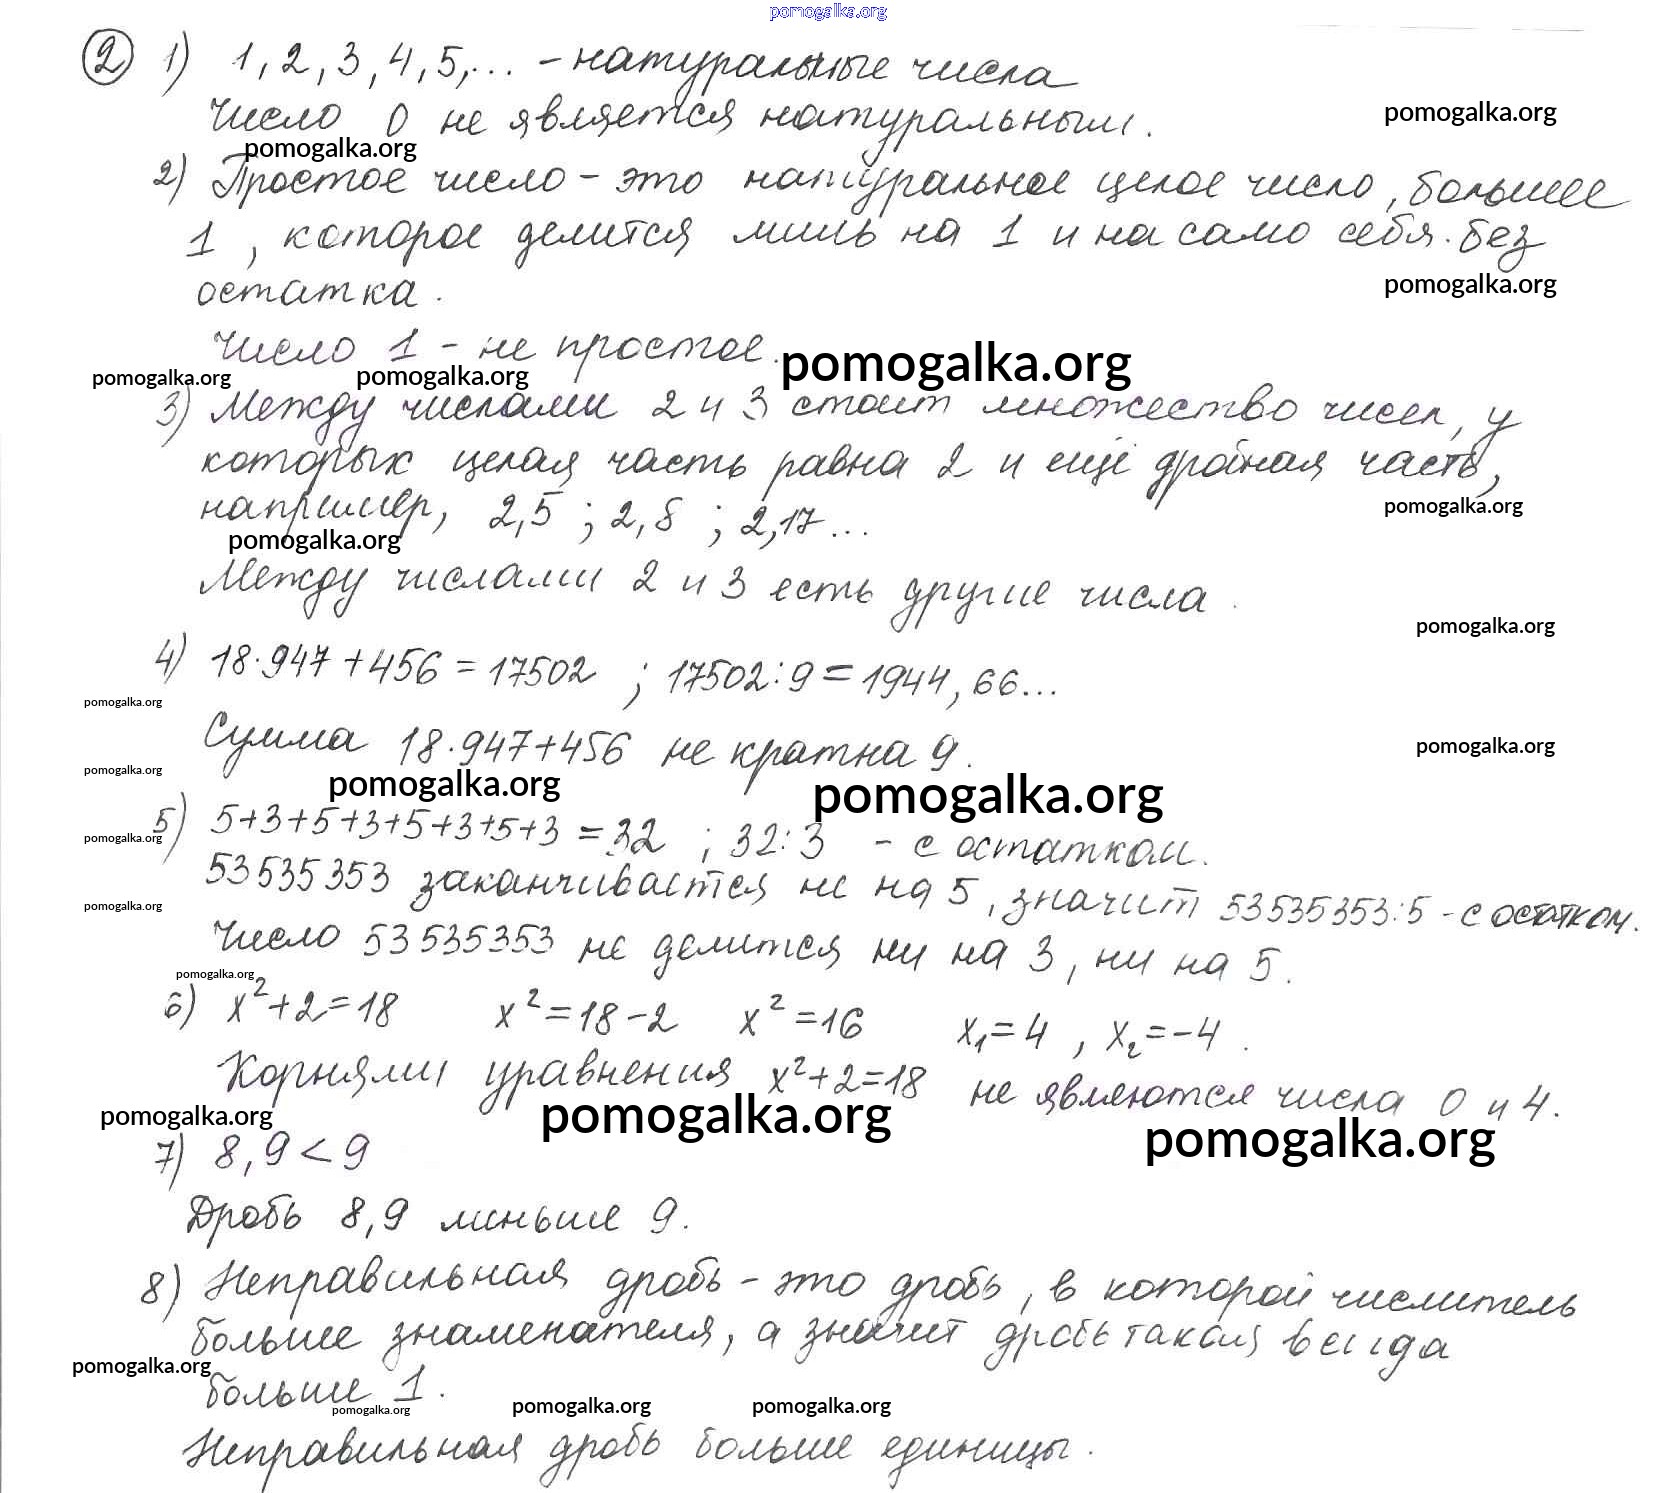 pomogalka.org
2 1) 1, 2, 3, 4, 5, ... - натуральные числа
Число 0 не является натуральным.
pomogalka.org
pomogalka.org
2) Простое число - это натуральное целое число, большее
1, которое делится лишь на 1 и на само себя без
остатка.
pomogalka.org
Число 1 - не простое.
pomogalka.org
pomogalka.org pomogalka.org
3) Между числами 2 и 3 стоит множество чисел, у
которых целая часть равна 2 и ещё дробная часть,
например, 2,5 ; 2,8 ; 2,17...
pomogalka.org
pomogalka.org
Между числами 2 и 3 есть другие числа.
pomogalka.org
4) 18·947+456=17502 ; 17502:9=1944,66...
pomogalka.org
Сумма 18·947+456 не кратна 9.
pomogalka.org
pomogalka.org pomogalka.org pomogalka.org
5) 5+3+5+3+5+3+5+3=32 ; 32:3 - с остатком.
pomogalka.org
53535353 заканчивается не на 5, значит 53535353:5 - с остатком.
pomogalka.org
Число 53535353 не делится ни на 3, ни на 5.
pomogalka.org
6) x²+2=18 x²=18-2 x²=16 x₁=4 , x₂=-4.
Корнями уравнения x²+2=18 не являются числа 0 и 4.
pomogalka.org pomogalka.org pomogalka.org
7) 8,9<9
Дробь 8,9 меньше 9.
8) Неправильная дробь - это дробь, в которой числитель
больше знаменателя, а значит дробь такая всегда
pomogalka.org
больше 1.
pomogalka.org pomogalka.org pomogalka.org
Неправильная дробь больше единицы.